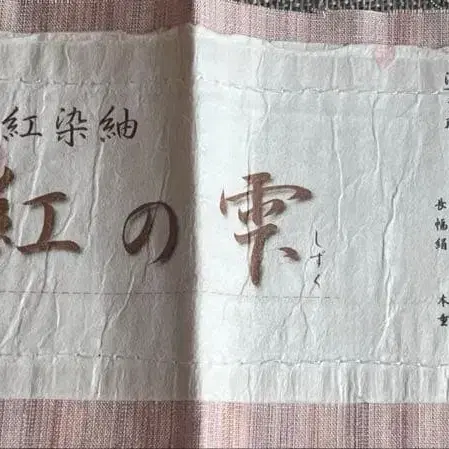 紅染紬
紅の雫
しずく
長幅絹